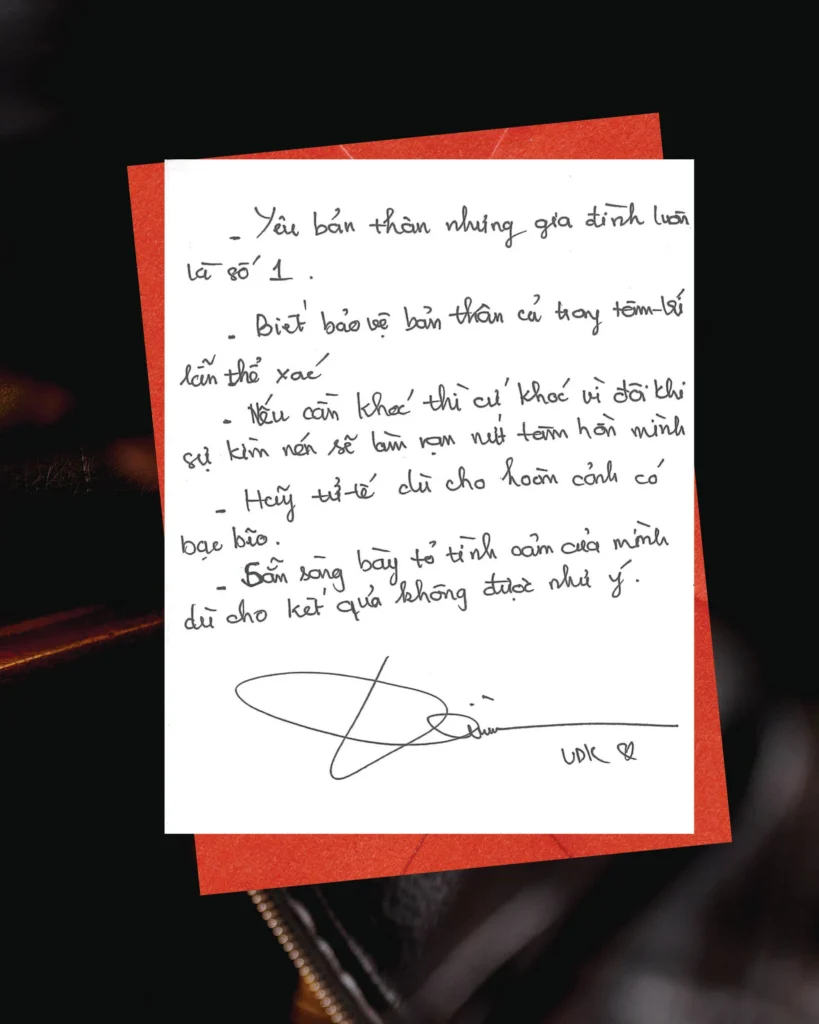 - Yêu bản thân nhưng gia đình luôn
là số 1.
- Biết bảo vệ bản thân cả trong tâm-lí
lẫn thể xác
- Nếu cần khóc thì cứ khóc vì đôi khi
sự kìm nén sẽ làm rạn nứt tâm hồn mình
- Hãy tử-tế dù cho hoàn cảnh có
bạc bẽo.
- Sẵn sàng bày tỏ tình cảm của mình
dù cho kết quả không được như ý.
UDK